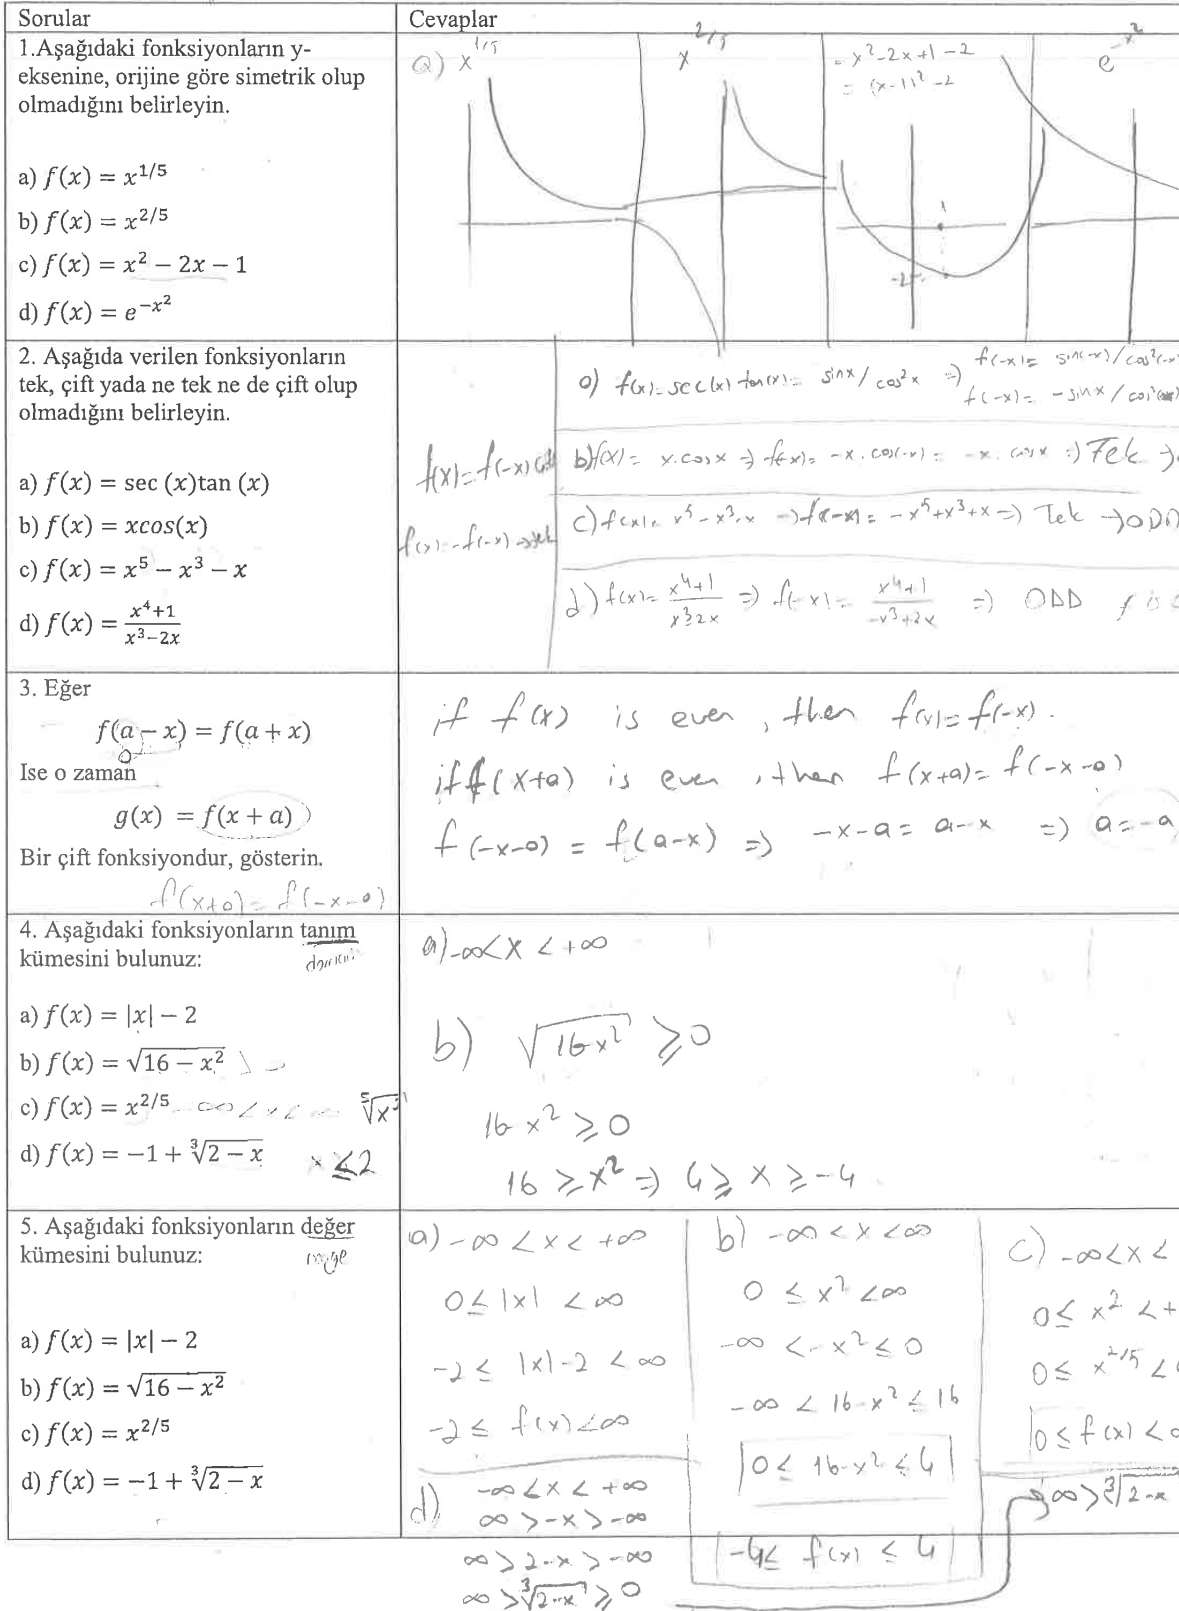 Sorular
Cevaplar
1.Aşağıdaki fonksiyonların y-
eksenine, orijine göre simetrik olup
olmadığını belirleyin.
a) f(x) = x^{1/5}
b) f(x) = x^{2/5}
c) f(x) = x² − 2x − 1
d) f(x) = e^{−x²}
a) x^{1/5}
x^{2/5}
= x²-2x+1-2
= (x-1)²-2
1
-2
e^{-x²}
2. Aşağıda verilen fonksiyonların
tek, çift yada ne tek ne de çift olup
olmadığını belirleyin.
a) f(x) = sec (x)tan (x)
b) f(x) = xcos(x)
c) f(x) = x⁵ − x³ − x
d) f(x) = \frac{x⁴+1}{x³−2x}
f(x)=f(-x) çift
f(x)=-f(-x) → tek
a) f(x)=sec(x) tan(x)= sinx/cos²x ⇒ f(-x)= sin(-x)/cos²(-x)
f(-x)= -sinx/cos²
b) f(x)= x.cosx ⇒ f(-x)= -x.cos(-x)= -x.cosx ⇒ Tek →
c) f(x)= x⁵-x³-x ⇒ f(-x)= -x⁵+x³+x ⇒ Tek → ODD
d) f(x)= \frac{x⁴+1}{x³-2x} ⇒ f(-x)= \frac{x⁴+1}{-x³+2x} ⇒ ODD f is
3. Eğer
f(a − x) = f(a + x)
Ise o zaman
g(x) = f(x + a)
Bir çift fonksiyondur, gösterin.
f(x+a)= f(-x-a)
if f(x) is even, then f(x)=f(-x).
if f(x+a) is even, then f(x+a)= f(-x-a)
f(-x-a) = f(a-x) ⇒ -x-a= a-x ⇒ a=-a
4. Aşağıdaki fonksiyonların tanım
kümesini bulunuz:
domain
a) f(x) = |x| − 2
b) f(x) = \sqrt{16 − x²}
c) f(x) = x^{2/5}
d) f(x) = −1 + ∛(2 − x)
x ≤ 2
a) -∞<x<+∞
b) √(16-x²) ≥ 0
16-x² ≥ 0
16 ≥ x² ⇒ 4 ≥ x ≥ -4
5. Aşağıdaki fonksiyonların değer
kümesini bulunuz:
range
a) f(x) = |x| − 2
b) f(x) = \sqrt{16 − x²}
c) f(x) = x^{2/5}
d) f(x) = −1 + ∛(2 − x)
a) -∞<x<+∞
0≤|x|<∞
-2≤|x|-2<∞
-2≤f(x)<∞
b) -∞<x<∞
0≤x²<∞
-∞<-x²≤0
-∞<16-x²≤16
0≤16-x²≤4
-4≤f(x)≤4
c) -∞<x<
0≤x²<+
0≤x^{2/5}<
0≤f(x)<
d) -∞<x<+∞
∞>-x>-∞
∞>2-x>-∞
∞>∛(2-x)≥0
∞>∛(2-x)